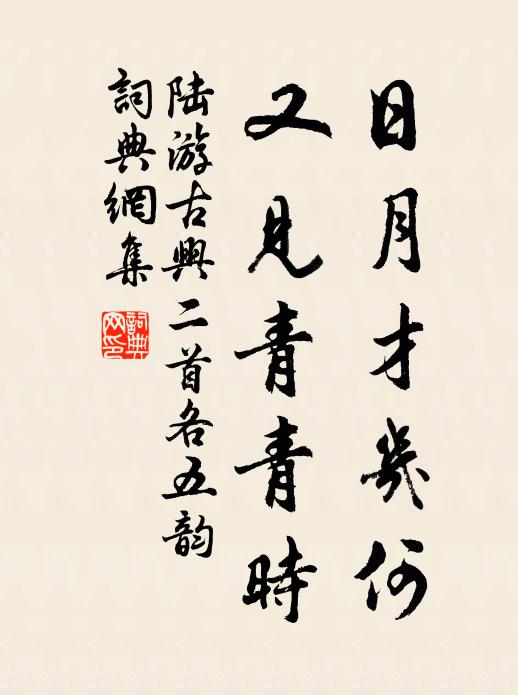 日月才幾何
又見青青時
陸游古興二首各五韵
詞典網集
詞典網印